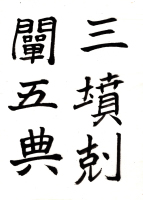 三墳剋
闡五典